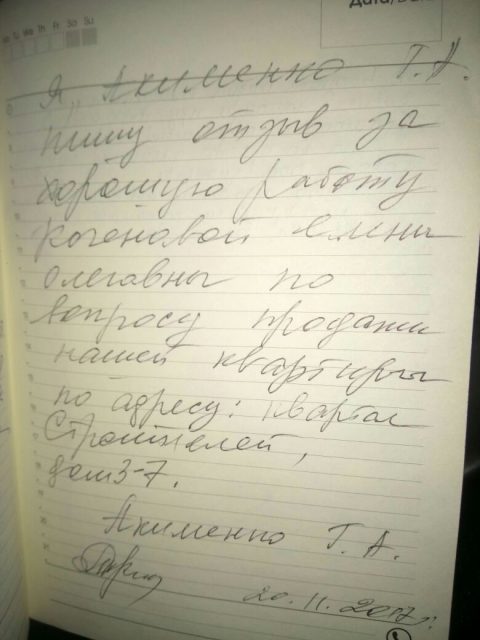 Th Fr Sa Su
Дата/Date
Я, Акименко Т.А.
пишу отзыв за
хорошую работу
Коченовой Елены
Олегавны по
вопросу продажи
нашей квартиры
по адресу: квартал
Строителей,
дом 3-7.
Акименко Т.А.
20.11.2017г.